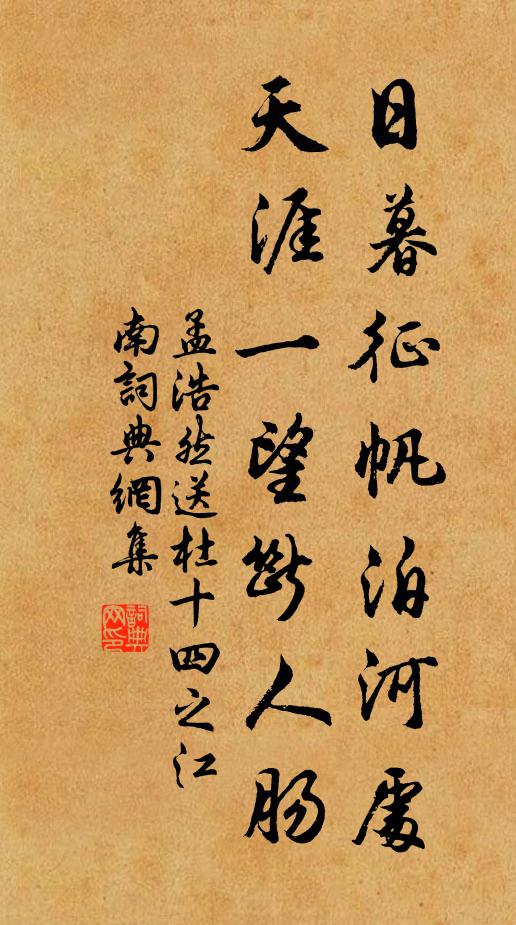 日暮征帆泊何處
天涯一望斷人腸
孟浩然送杜十四之江
南詞典網集
詞典
网印